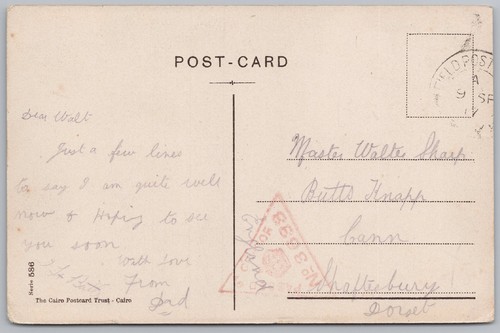 POST-CARD
FIELD POST
A
9 SP
17
Dear Walt
Just a few lines
to say I am quite well
now & Hoping to see
you soon
With love
From
Dad
Master Walter Sharp
Butts Knapp
Cann
Shaftesbury
Dorset
England
No 3093
Serie 586
The Cairo Postcard Trust - Cairo